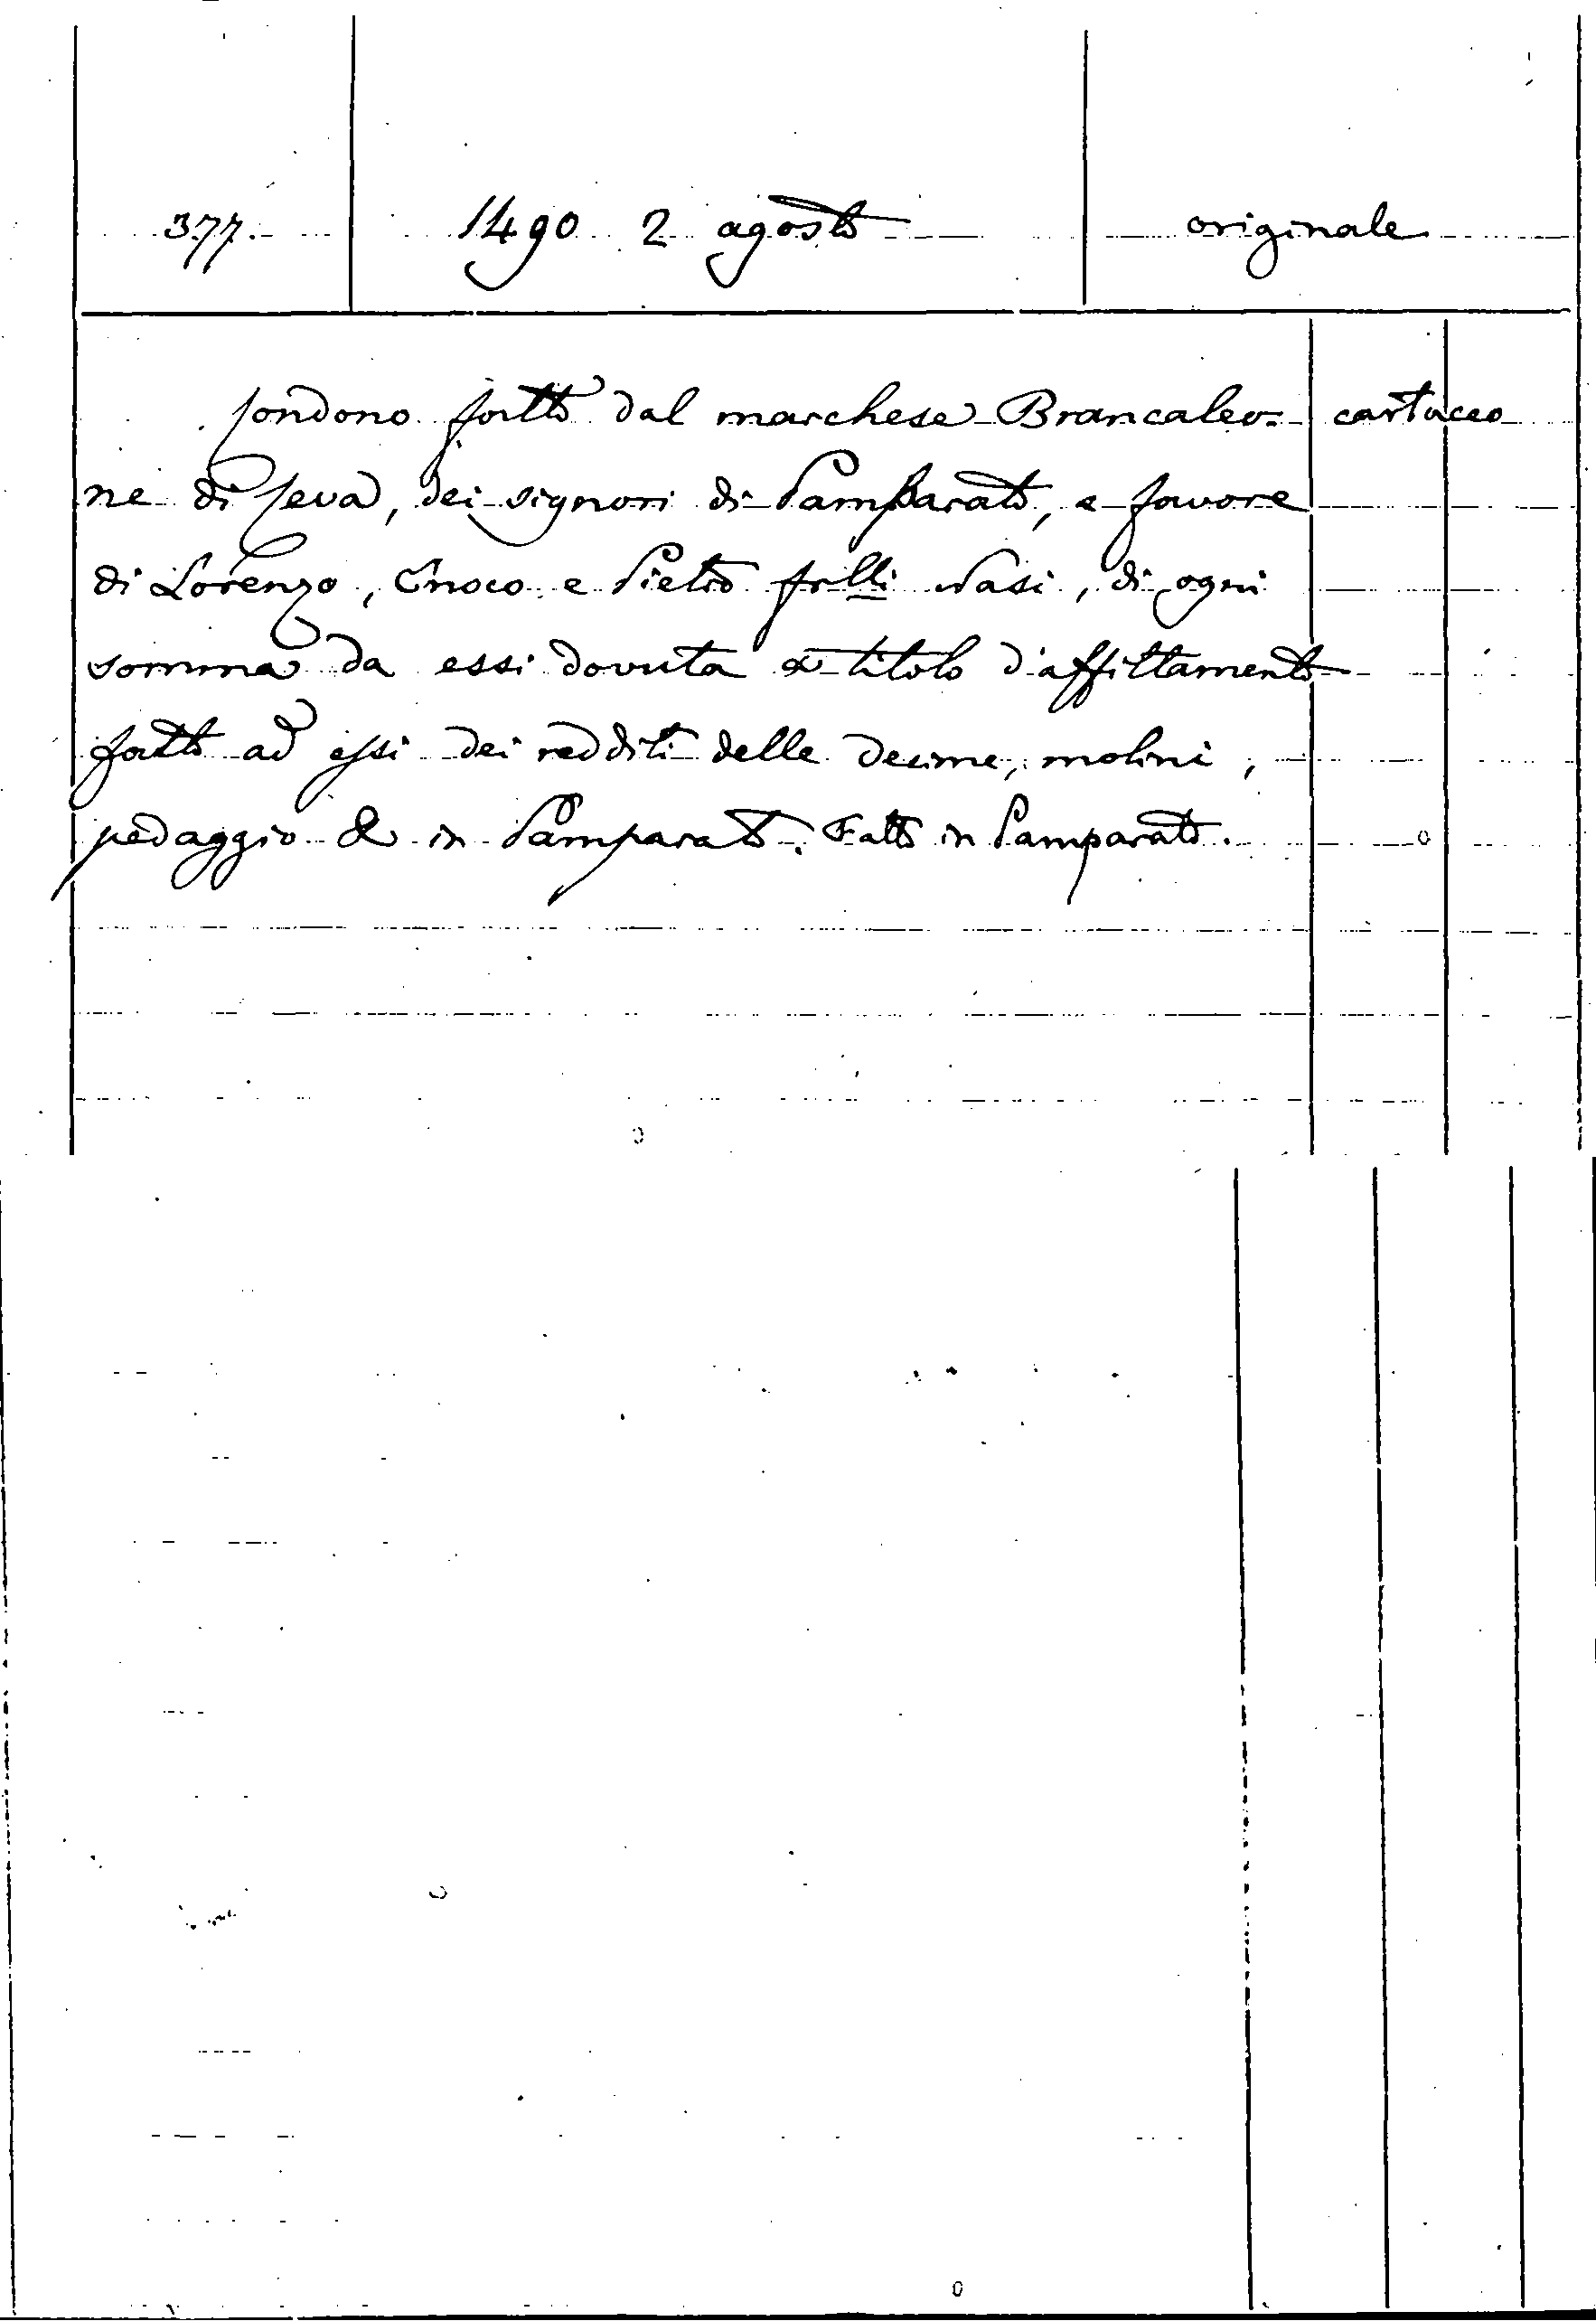 377. 1490 2 agosto originale
Condono fatto dal marchese Brancaleo- cartaceo
ne di Ceva, dei signori di Pamparato, a favore
di Lorenzo, Enoco e Pietro frlli Nasi, di ogni
somma da essi dovuta a titolo d'affittamento
fatto ad essi dei redditi delle decime, molini,
pedaggio & in Pamparato. Fatto in Pamparato.